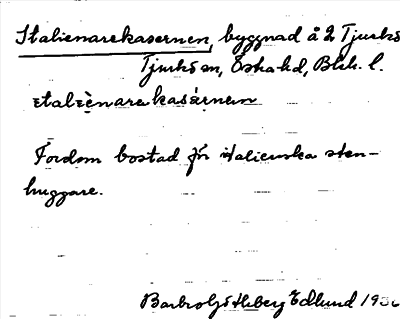 Italienarekasernen, byggnad å 2 Tjurkö
Tjurkö sn, Ö hd, Blek. l.
italiènarekasárnen
Fordom bostad för italienska sten-
huggare.
Edlund 193